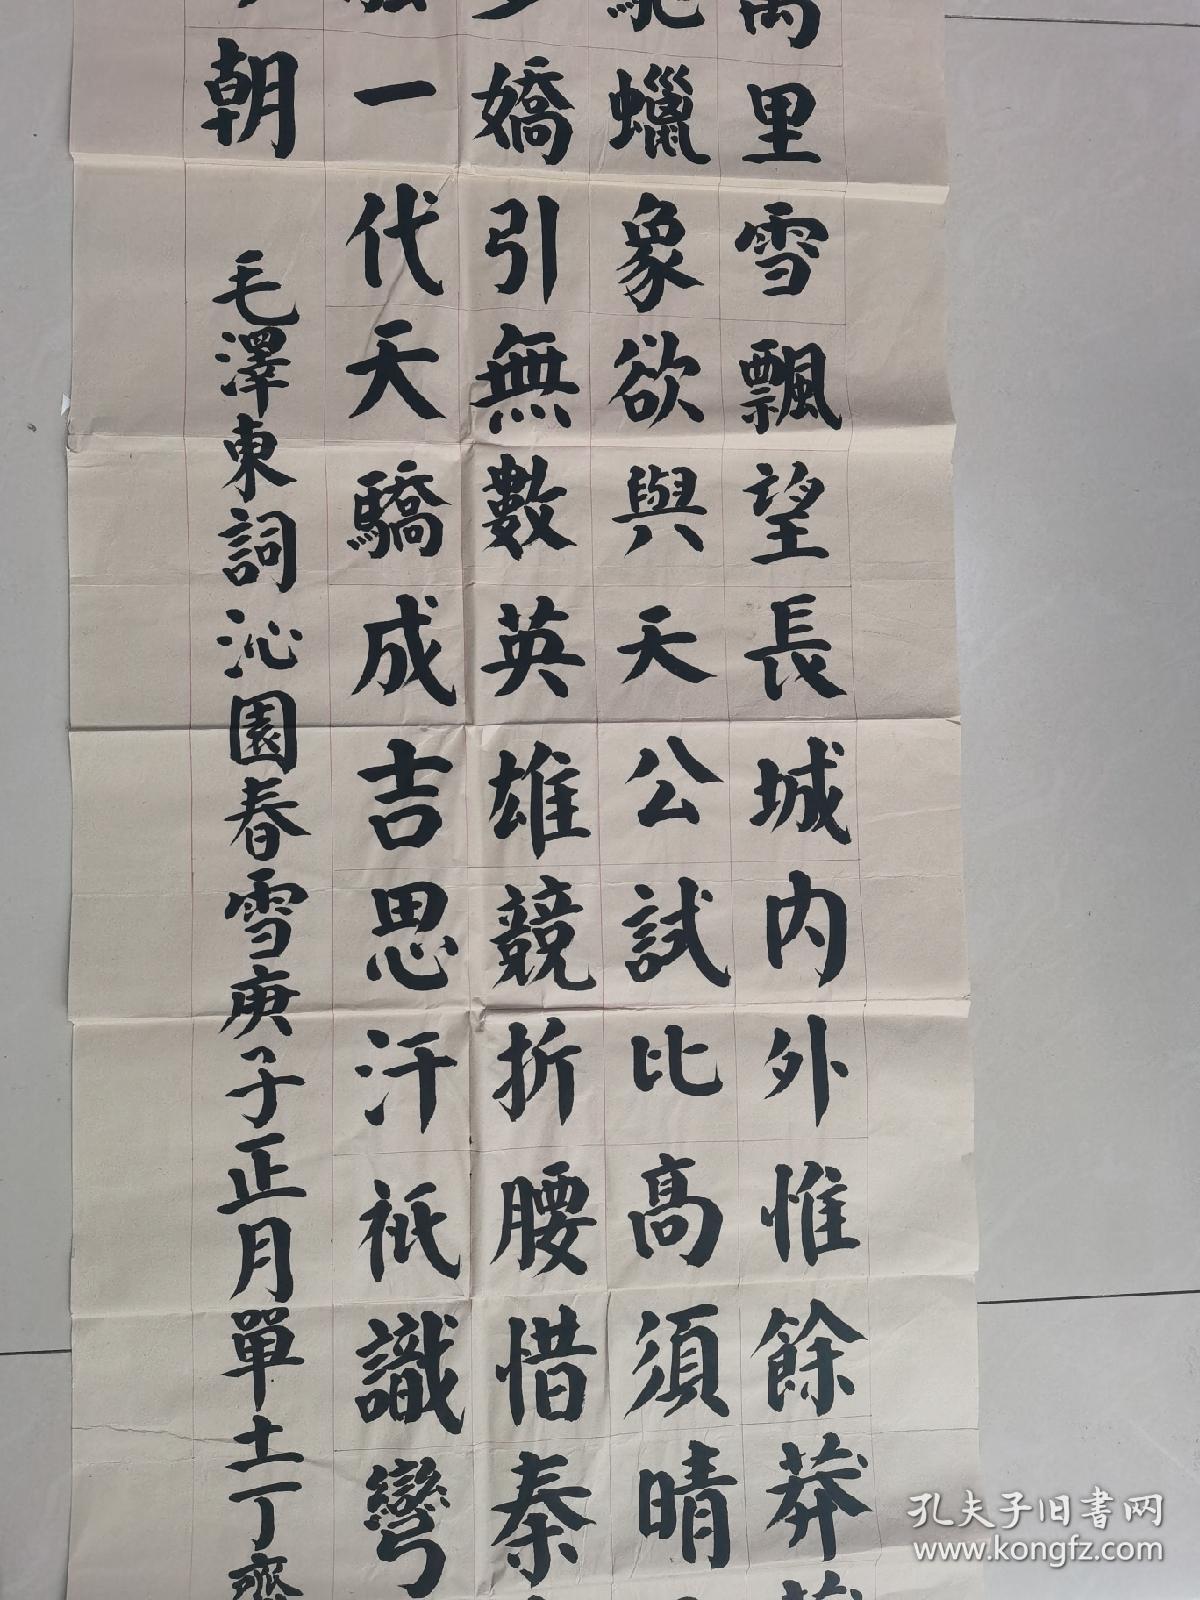 萬里雪飄望長城内外惟餘莽
馳蠟象欲與天公試比高須晴
多嬌引無數英雄競折腰惜秦
一代天驕成吉思汗祇識彎
朝
毛澤東詞沁園春雪庚子正月單士丁齊
孔夫子旧书网
www.kongfz.com